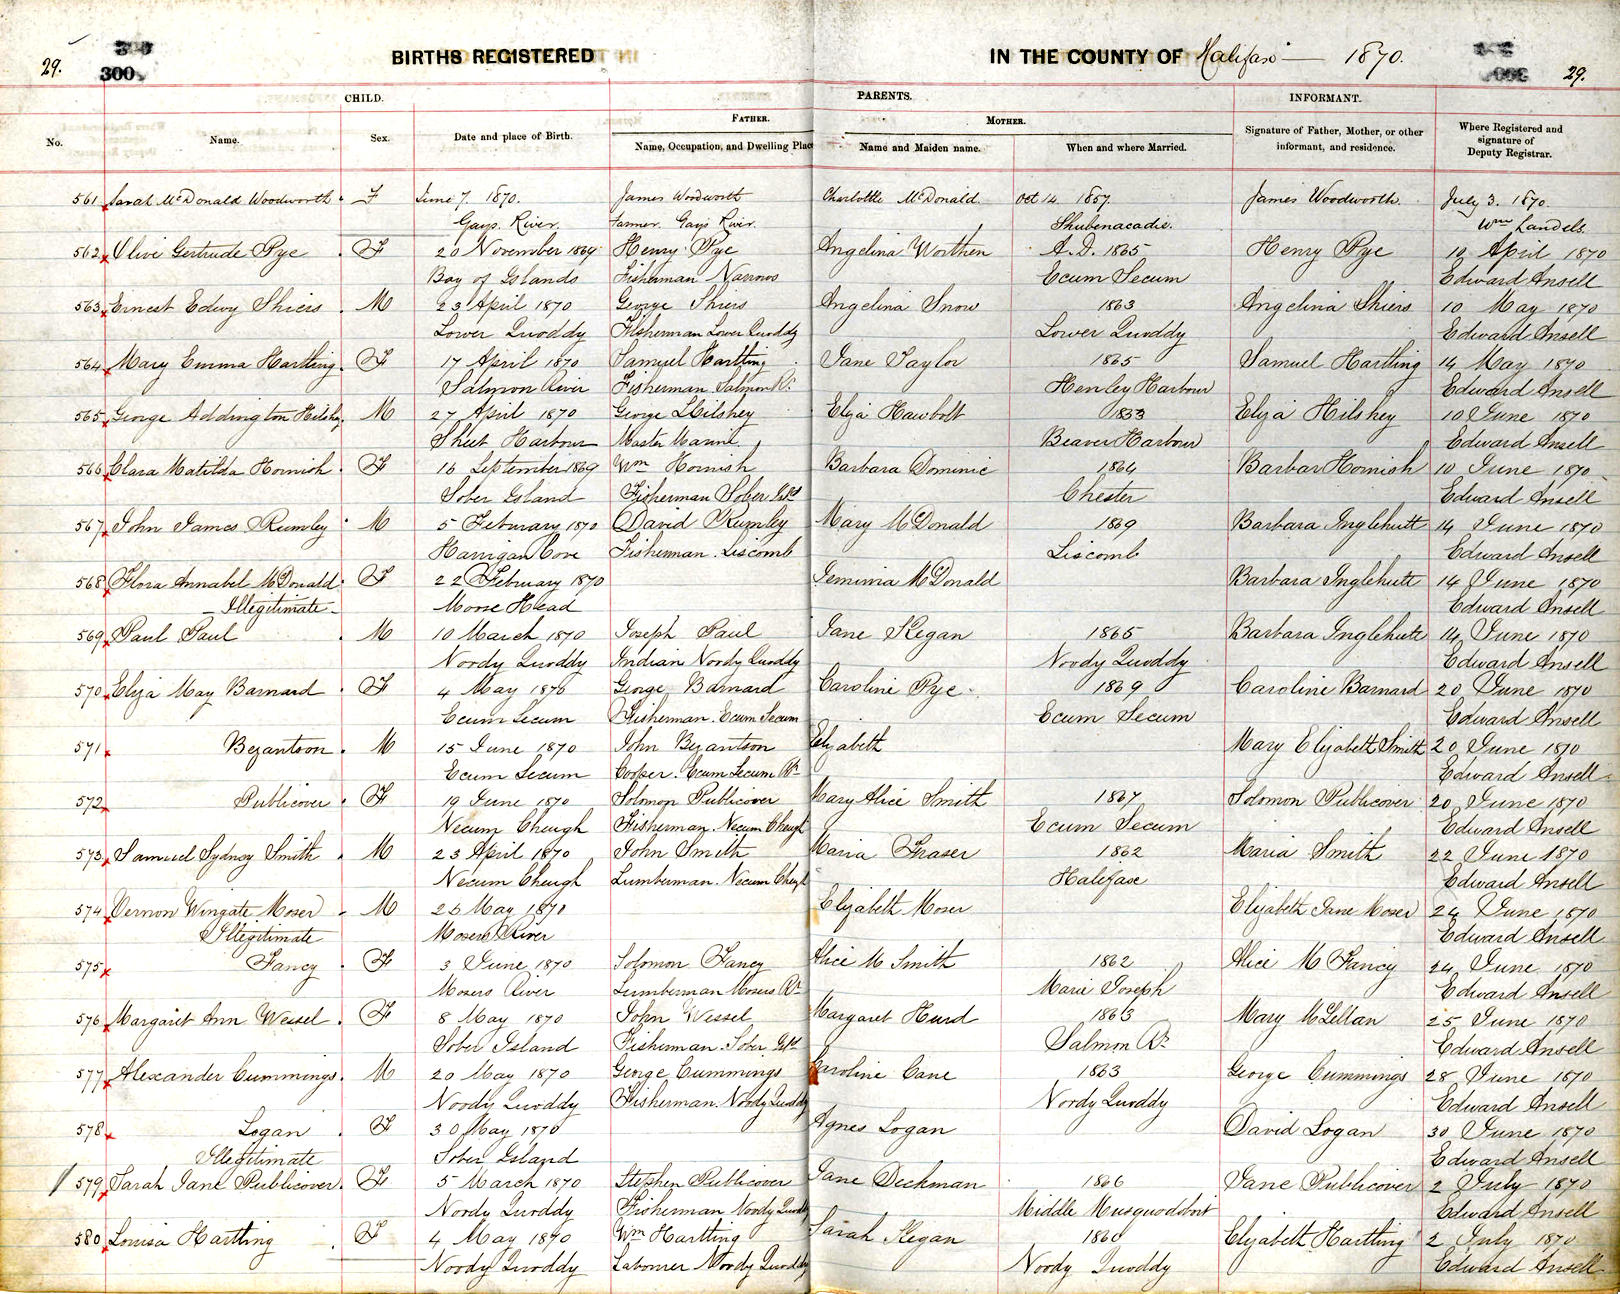 29.
300
BIRTHS REGISTERED
IN THE COUNTY OF Halifax — 1870.
29.
CHILD.
PARENTS.
INFORMANT.
No.
Name.
Sex.
Date and place of Birth.
FATHER.
Name, Occupation, and Dwelling Plac
MOTHER.
Name and Maiden name.
When and where Married.
Signature of Father, Mother, or other
informant, and residence.
Where Registered and
signature of
Deputy Registrar.
561 Sarah McDonald Woodworth F June 7. 1870. James Woodworth Charlottle McDonald Oct 14. 1857. James Woodworth. July 3. 1870.
Gays River. Farmer. Gays River. Shubenacadie. Wm Landels
562 Olive Gertrude Pye F 20 November 1869 Henry Pye Angelina Worthen A.D. 1865 Henry Pye 10 April 1870
Bay of Islands Fisherman Narrows Ecum Secum Edward Ansell
563 Ernest Edwy Shiers M 23 April 1870 George Shiers Angelina Snow 1863 Angelina Shiers 10 May 1870
Lower Quoddy Fisherman Lower Quoddy Lower Quoddy Edward Ansell
564 Mary Emma Hartling F 17 April 1870 Samuel Hartling Jane Taylor 1865 Samuel Hartling 14 May 1870
Salmon River Fisherman Salmon Rr Henley Harbour Edward Ansell
565 George Addington Hilshey M 27 April 1870 George Hilshey Eliza Hawbolt 1853 Eliza Hilshey 10 June 1870
Sheet Harbour Master Marine Beaver Harbour Edward Ansell
566 Clara Matilda Hornish F 16 September 1869 Wm Hornish Barbara Dominic 1864 Barbar Hornish 10 June 1870
Sober Island Fisherman Sober Isld Chester Edward Ansell
567 John James Rumley M 5 February 1870 David Rumley Mary McDonald 1869 Barbara Inglehutt 14 June 1870
Harrigan Cove Fisherman. Liscomb Liscomb Edward Ansell
568 Flora Annabel McDonald F 22 February 1870 Jemima McDonald Barbara Inglehutt 14 June 1870
- Illegitimate - Moose Head Edward Ansell
569 Paul Paul M 10 March 1870 Joseph Paul Jane Kegan 1865 Barbara Inglehutt 14 June 1870
Noody Quoddy Indian Noody Quoddy Noody Quoddy Edward Ansell
570 Eliza May Barnard F 4 May 1870 George Barnard Caroline Pye 1869 Caroline Barnard 20 June 1870
Ecum Secum Fisherman. Ecum Secum Ecum Secum Edward Ansell
571 Bezantson M 15 June 1870 John Bezantson Elizabeth Mary Elizabeth Smith 20 June 1870
Ecum Secum Cooper. Ecum Secum Rr Edward Ansell
572 Publicover F 19 June 1870 Solomon Publicover Mary Alice Smith 1867 Solomon Publicover 20 June 1870
Necum Cheugh Fisherman. Necum Cheugh Ecum Secum Edward Ansell
573 Samuel Sydney Smith M 23 April 1870 John Smith Maria Fraser 1862 Maria Smith 22 June 1870
Necum Cheugh Lumberman. Necum Cheugh Halifax Edward Ansell
574 Vernon Wingate Moser M 25 May 1870 Elizabeth Moser Elizabeth Jane Moser 24 June 1870
Illegitimate Mosers River Edward Ansell
575 Fancy F 3 June 1870 Solomon Fancy Alice M Smith 1862 Alice M Fancy 24 June 1870
Mosers River Lumberman Mosers Rr Marie Joseph Edward Ansell
576 Margaret Ann Wessel F 8 May 1870 John Wessel Margaret Hurd 1863 Mary McLellan 25 June 1870
Sober Island Fisherman. Sober Isld Salmon Rr Edward Ansell
577 Alexander Cummings M 20 May 1870 George Cummings Caroline Cane 1863 George Cummings 28 June 1870
Noody Quoddy Fisherman. Noody Quoddy Noody Quoddy Edward Ansell
578 Logan F 30 May 1870 Agnes Logan David Logan 30 June 1870
Illegitimate Sober Island Edward Ansell
579 Sarah Jane Publicover F 5 March 1870 Stephen Publicover Jane Dechman 1866 Jane Publicover 2 July 1870
Noody Quoddy Fisherman Noody Quoddy Middle Musquodoboit Edward Ansell
580 Louisa Hartling F 4 May 1870 Wm Hartling Sarah Kegan 1860 Elizabeth Hartling 2 July 1870
Noody Quoddy Labourer Noody Quoddy Noody Quoddy Edward Ansell